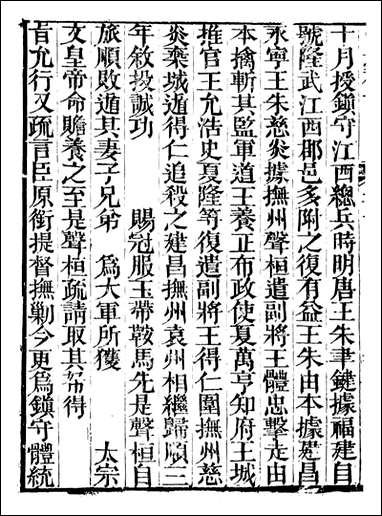 十月授鎮守江西總兵時明唐王朱聿鍵據福建自
號隆武江西郡邑多附之復有益王朱由本據建昌
永寧王朱慈炎據撫州聲桓遣副將王體忠擊走由
本擒斬其監軍道王養正布政使夏萬亨知府王域
推官王允浩史夏隆等復遣副將王得仁圍撫州慈
炎棄城遁得仁追殺之建昌撫州袁州相繼歸順三
年敘投誠功　賜冠服玉帶鞍馬先是聲桓自
旅順敗遁其妻子兄弟　爲大軍所獲　太宗
文皇帝命贍養之至是聲桓疏請取其帑得
旨允行又疏言臣原銜提督撫剿今更爲鎮守體統